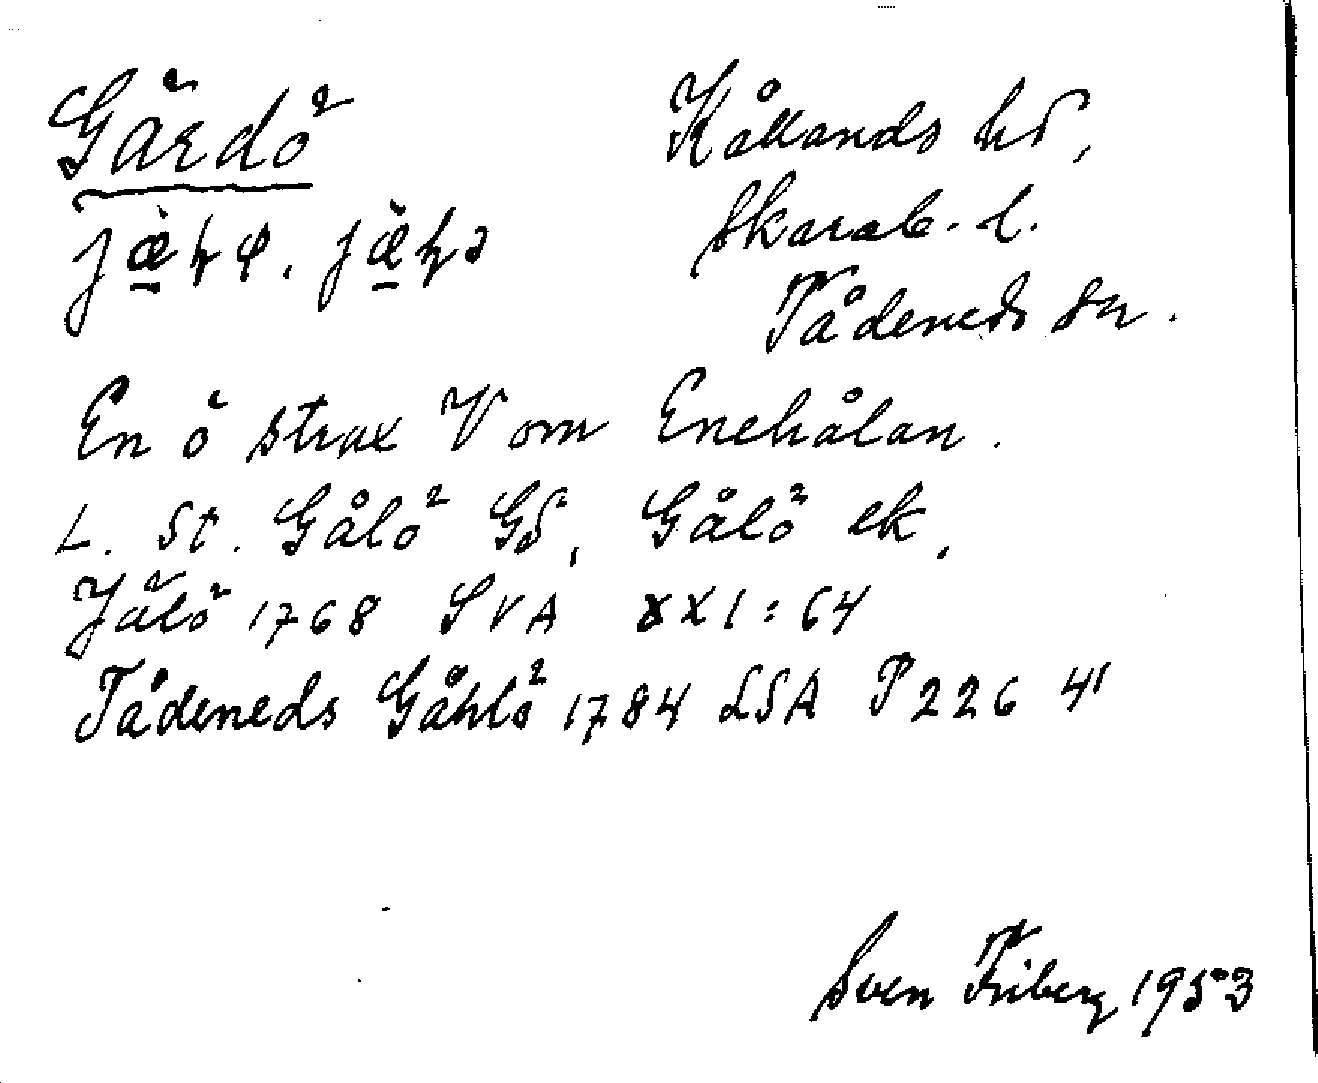 Gärdö
Kållands hd,
Skarab. l.
Tådeneds sn.
En ö strax V om Enehålan.
L. St. Gålö Gd, Gålö ek,
Jälö 1768 SVA XXI:64
Tådeneds Gåhlö 1784 LSA P 226 41
Sven Friberg 1953